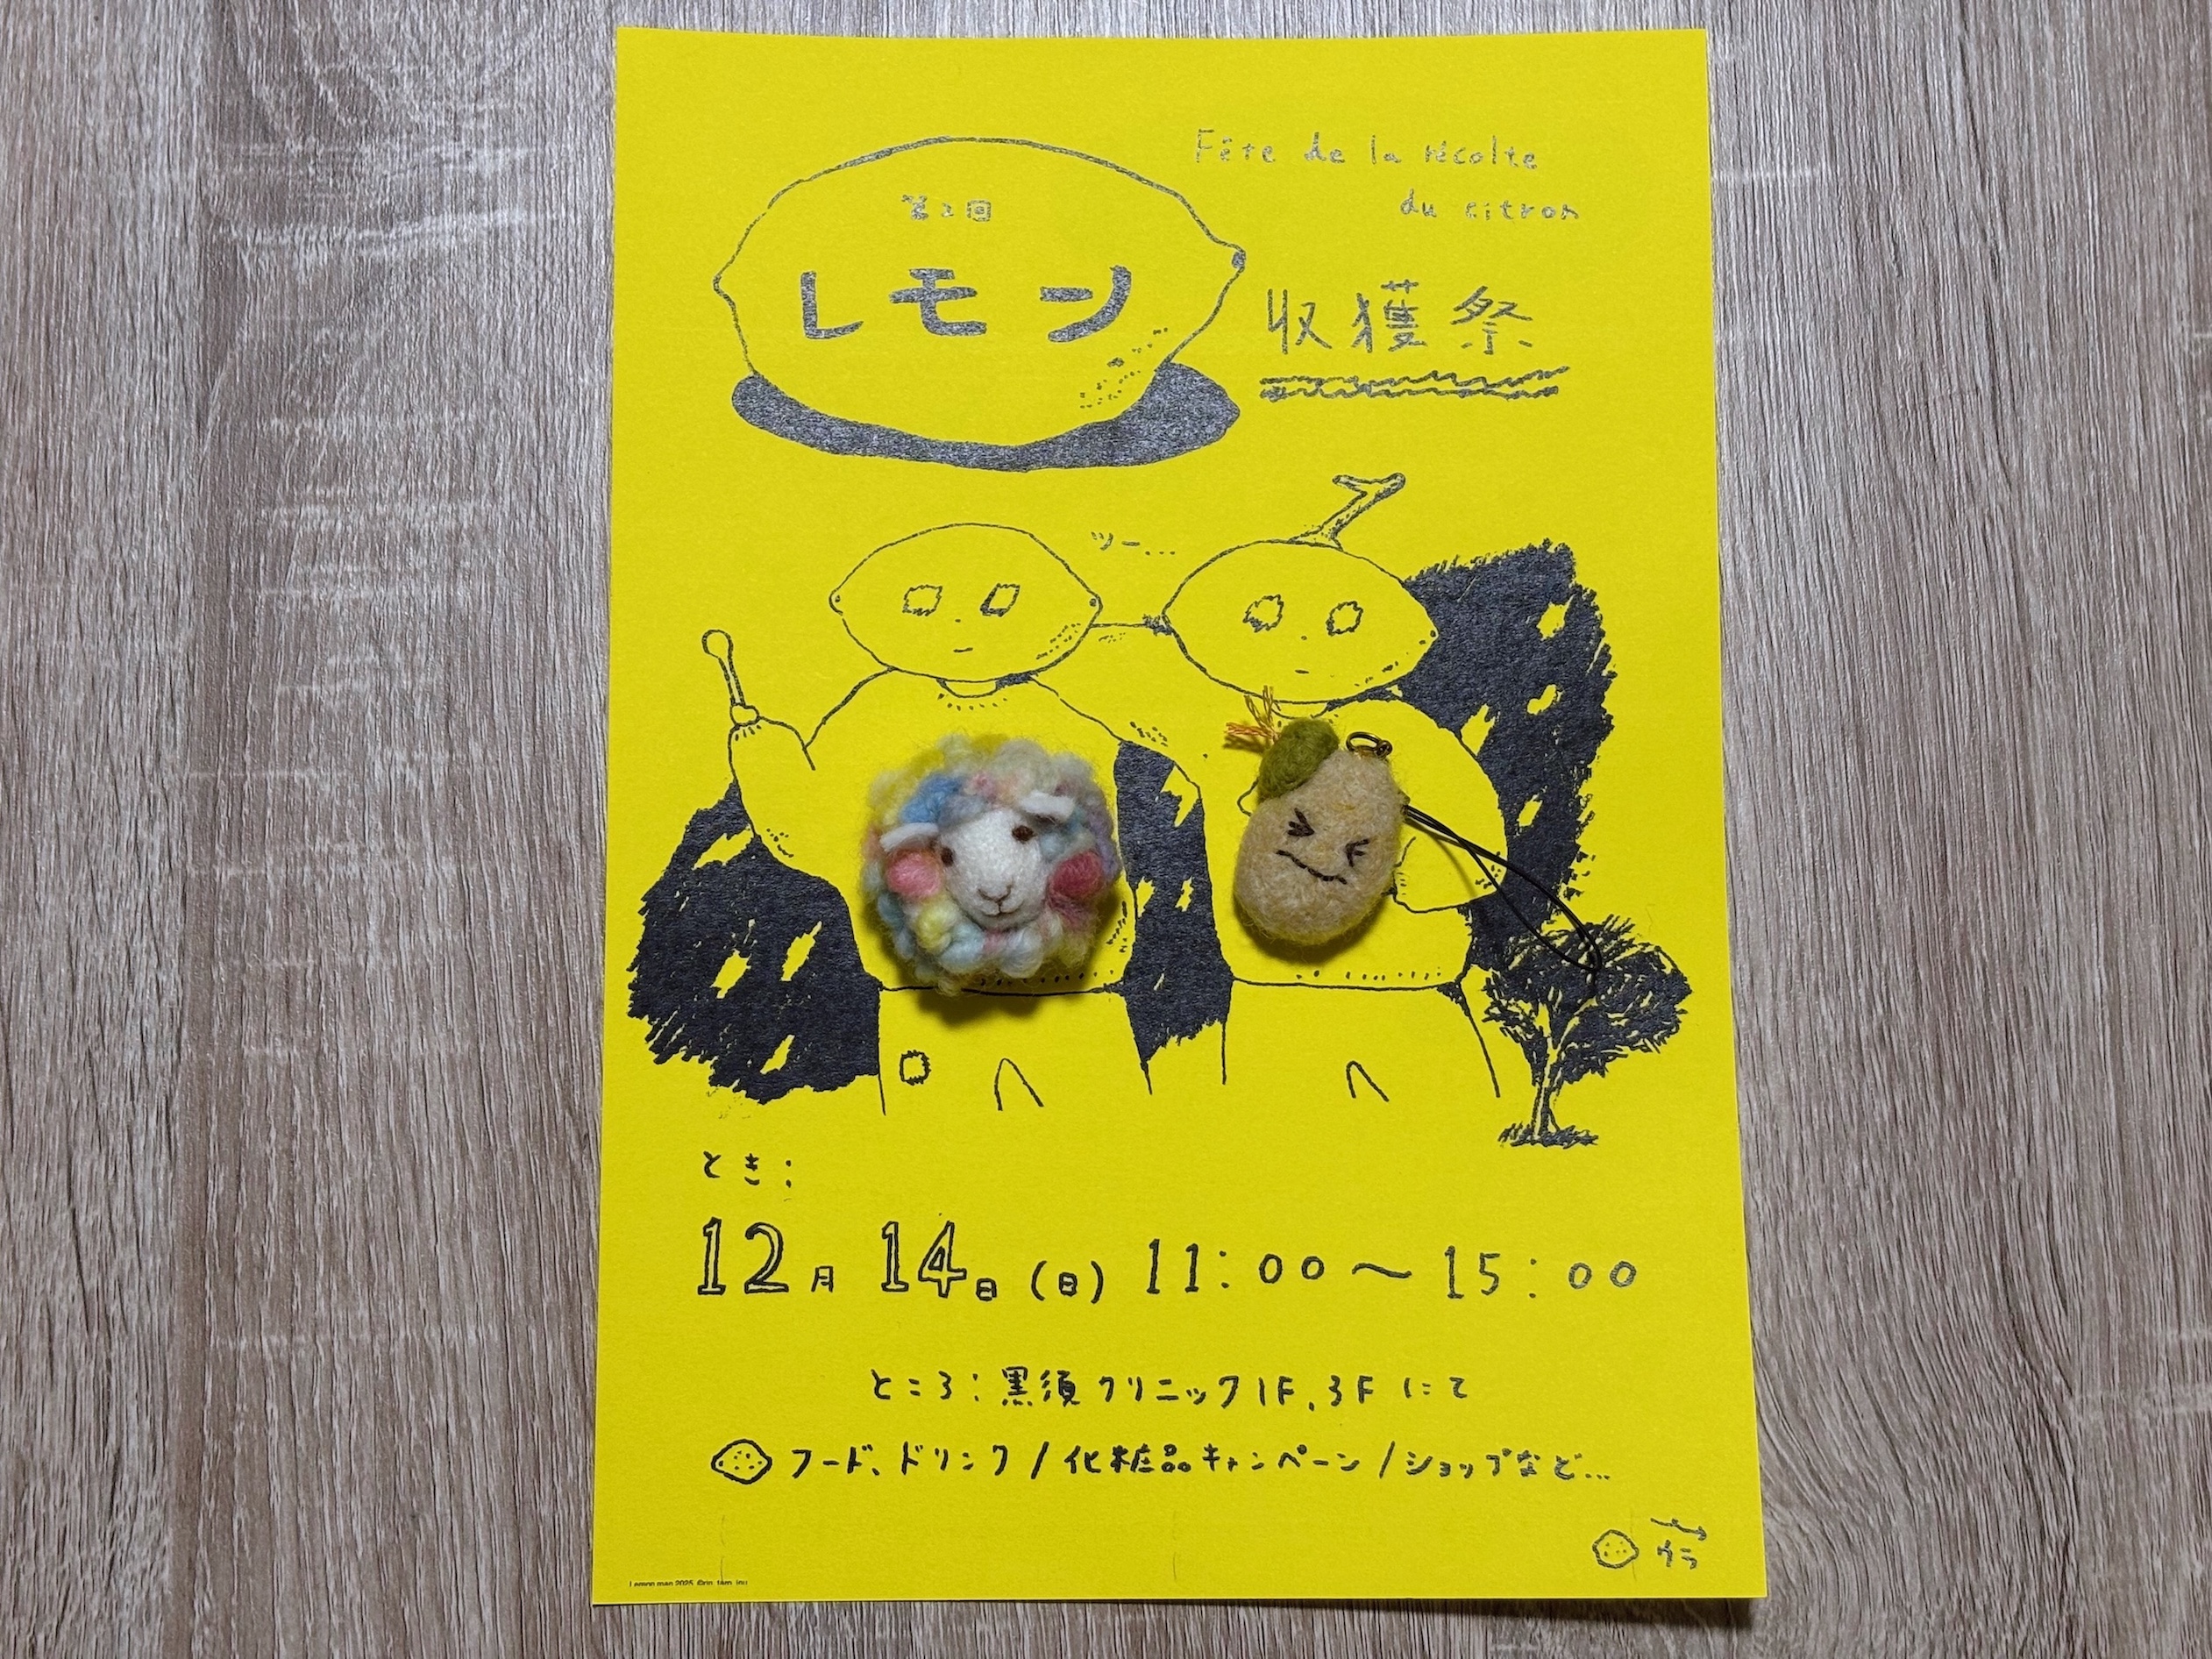 Fête de la récolte
du citron
第2回
レモン
収獲祭
ツー...
とき:
12月14日(日)11:00〜15:00
ところ:黒須クリニック1F,3Fにて
フード、ドリンク/化粧品キャンペーン/ショップなど...
ウラ
Lemon man 2025